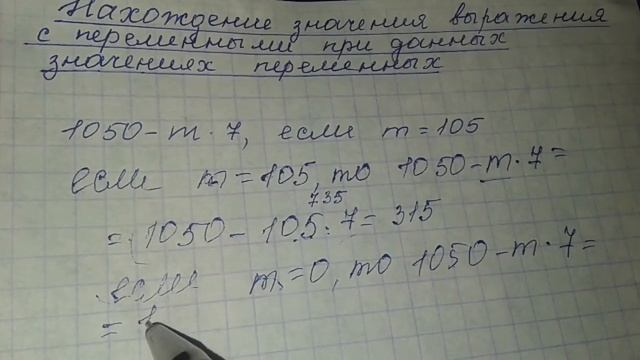 Нахождение значения выражения
с переменными при данных
значениях переменных
1050 - m · 7, если m = 105
если m = 105, то 1050 - m · 7 =
735
= 1050 - 105 · 7 = 315
если m = 0, то 1050 - m · 7 =
= 1